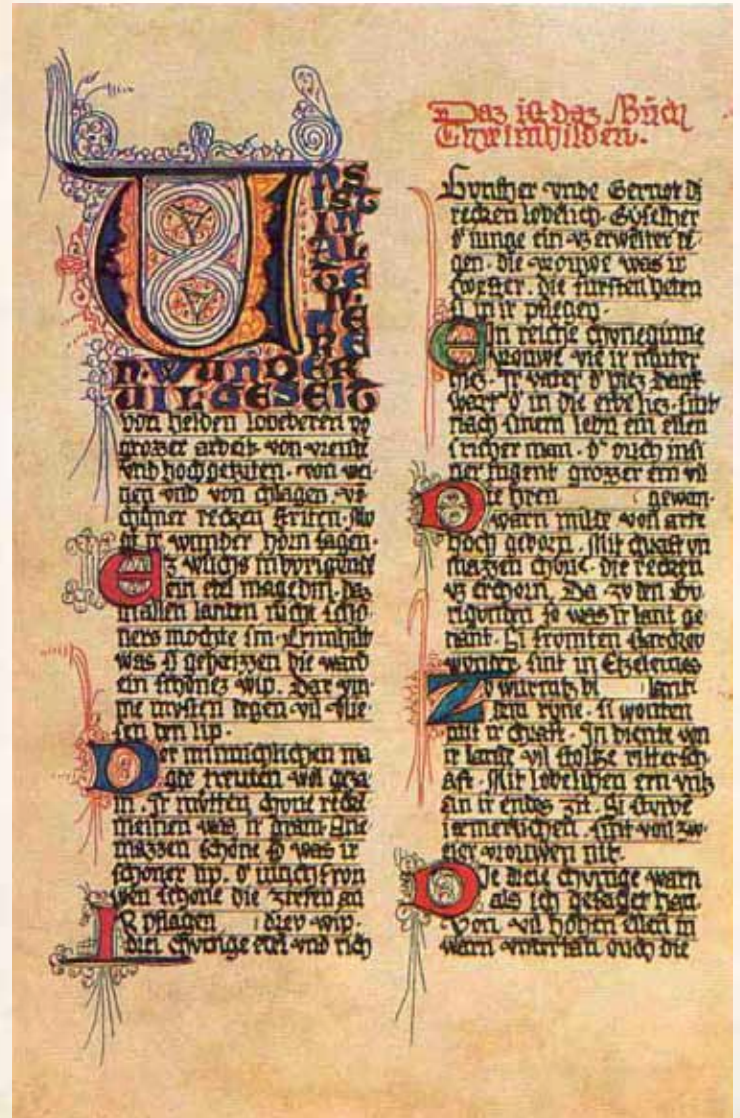 UNS
IST
IN
ALT
EN
MERE
N·WUNDER
UIL GESEIT
von helden lovberen vō
grozzer arbeit· von vreude
vnd hochgeziten· von wei
nen vnd von chlagen· vō
chuner recken striten· mv
get ir wunder horn sagen·
Ez wuchs in bvrigunde
ein edel magedin· daz
in allen landen nicht scho
ners mochte sin· Crimhilt
was si geheizzen die ward
ein schonez wip· Dar vm
me mvsten degen vil vlie
sen den lip·
Der minnichlichen ma
get treuten wol geza
m· Ir mvtten chune recke
was ir gram· Ane
mazzen schone so was ir
schoner lip· d'
schone die
IR pflagen drey
drei chvnige edel vnd rich
Daz ist daz Bůch
Chreimhilden·
Gunther vnde Gernot di
recken lobelich· Giselher
d' iunge ein vz erwelter de
gen· die vrouwe was ir
swester· die fursten heten
si in ir pflegen·
Ein reiche chvneginne
vrouwe vte ir muter
hiez· Ir vater d' hiez Dank
wart d' in die erbe liez· sint
nach sinem lebn ein ellen
s richer man· d' ouch in si
ner iugent grozzer ern vil
Die hren gewan·
warn milte von arte
hoch geborn· Mit chraft vn
mazzen chvne· die recken
vz erchorn· Da zv den Bv
rigonden so was ir lant ge
nant· Si fromten starchev
wonder sint in Etzeleines
Zv wurmtz bi lant·
dem ryne· si wonten
mit ir chraft· In diente von
ir lande vil stoltze rittersch
aft· Mit lobelichen ern vntz
an ir endes zit· Si sturbē
iemerlichen· sint von zw
eier vrouwen nit·
Die drie chvnige warn
als ich gesaget han
von vil hohen ellen in
warn vntertan ouch die